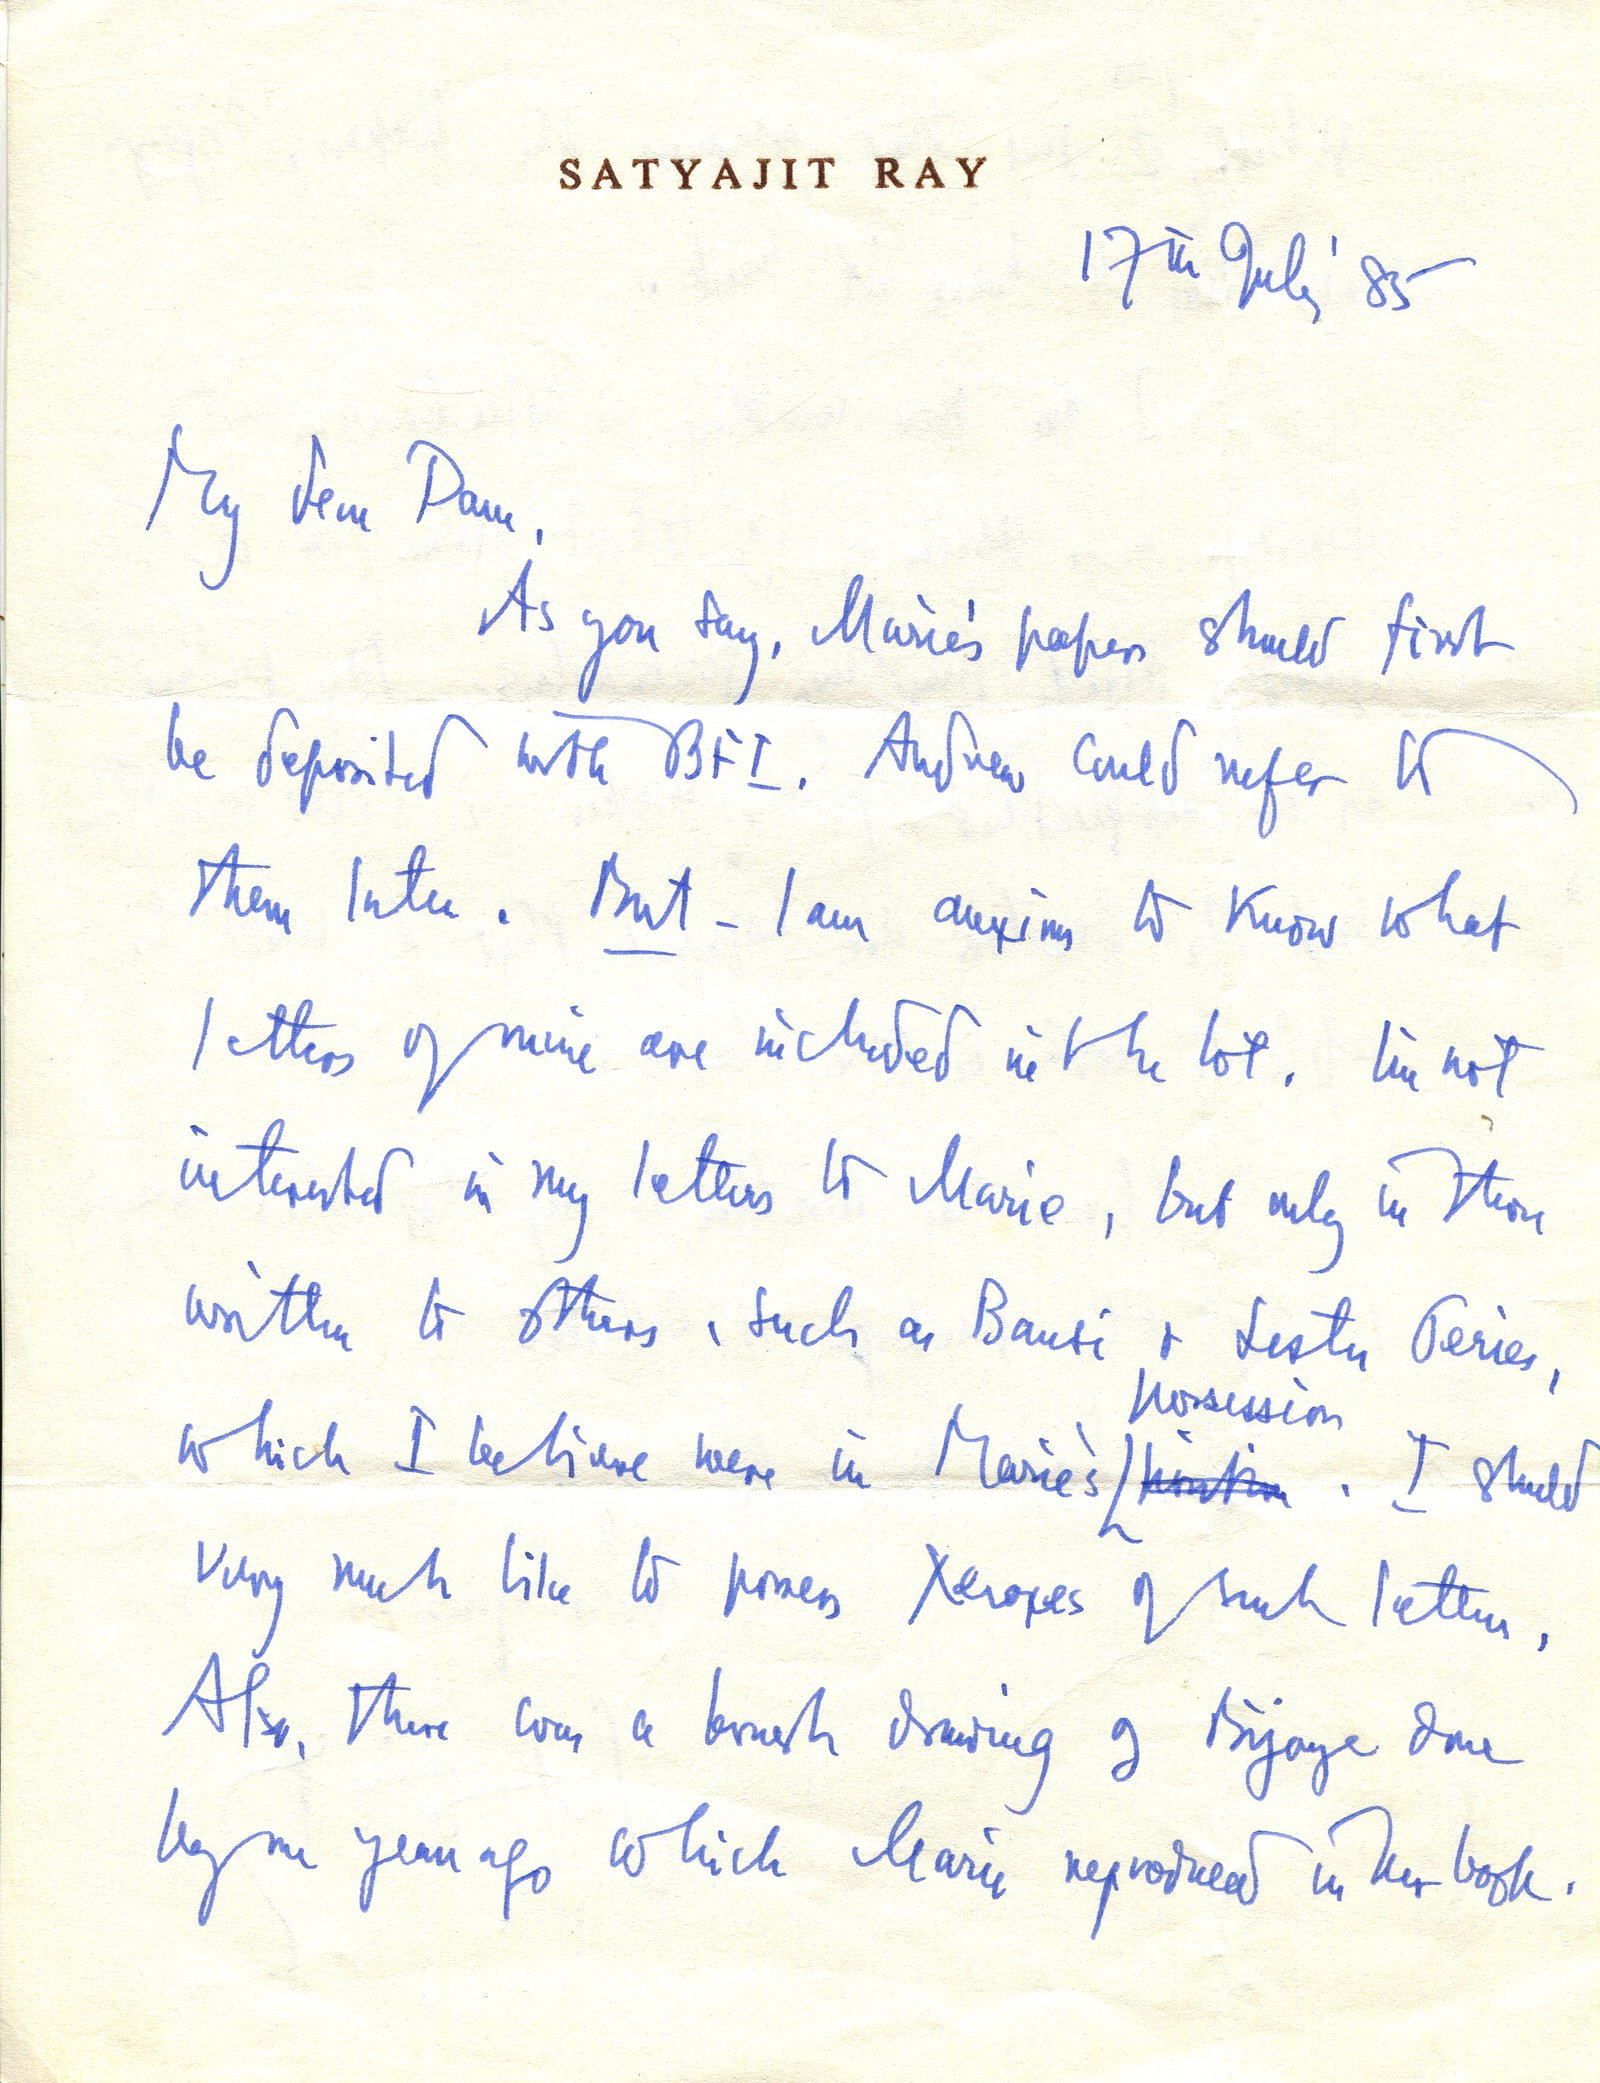 SATYAJIT RAY
17th July '85
My dear Dam,
As you say, Marie's papers should first
be deposited with BFI. Andrew could refer to
them later. But – I am anxious to know what
letters of mine are included in the lot. I'm not
interested in my letters to Marie, but only in those
written to others, such as Bansi & Lester Peries,
which I believe were in Marie's possession. I should
very much like to possess Xeroxes of such letters.
Also, there was a brush drawing of Bijoya done
by me years ago which Marie reproduced in her book.